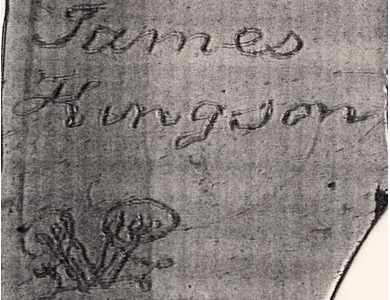 James
Kingson